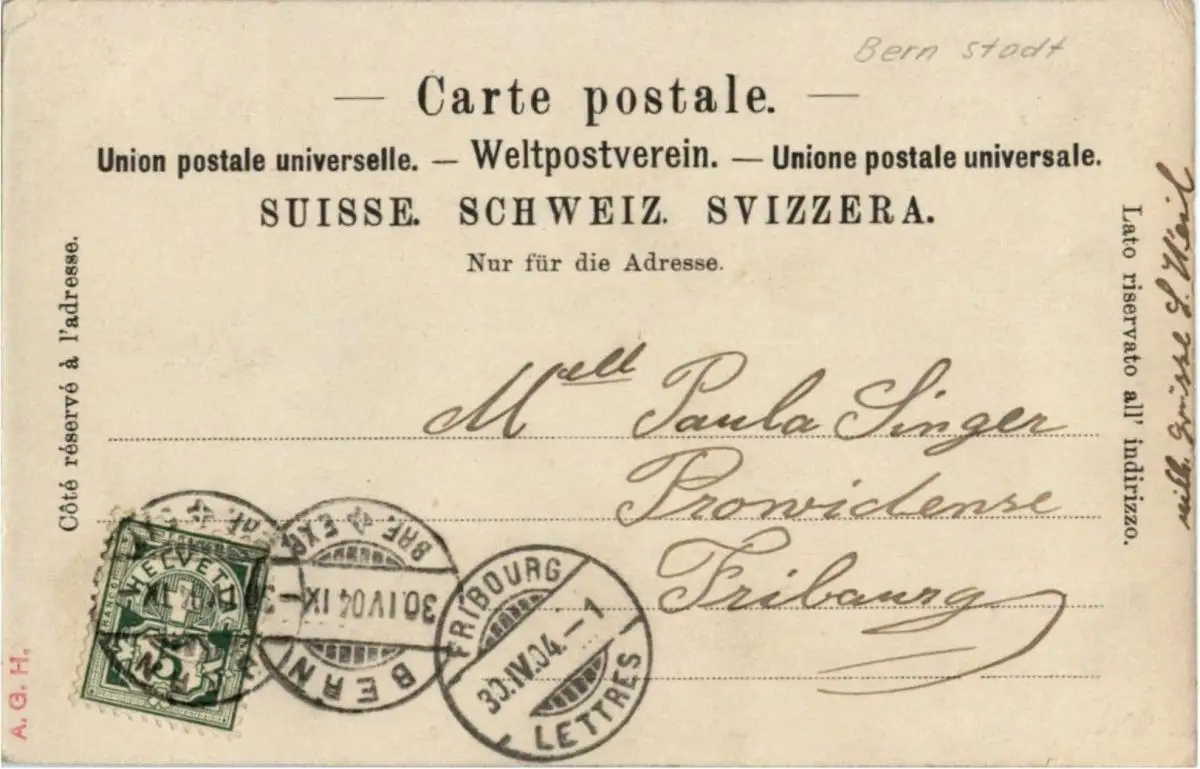 Bern stadt
— Carte postale. —
Union postale universelle. — Weltpostverein. — Unione postale universale.
SUISSE. SCHWEIZ. SVIZZERA.
Nur für die Adresse.
Côté réservé à l'adresse.
Lato riservato all' indirizzo.
Grüsse S. Weil
Mell Paula Singer
Prowidense
Fribourg
HELVETIA
5
BERN
30.IV.04.IX
BRF. EXP.
FRIBOURG
30.IV.04.–1
LETTRES
A. G. H.